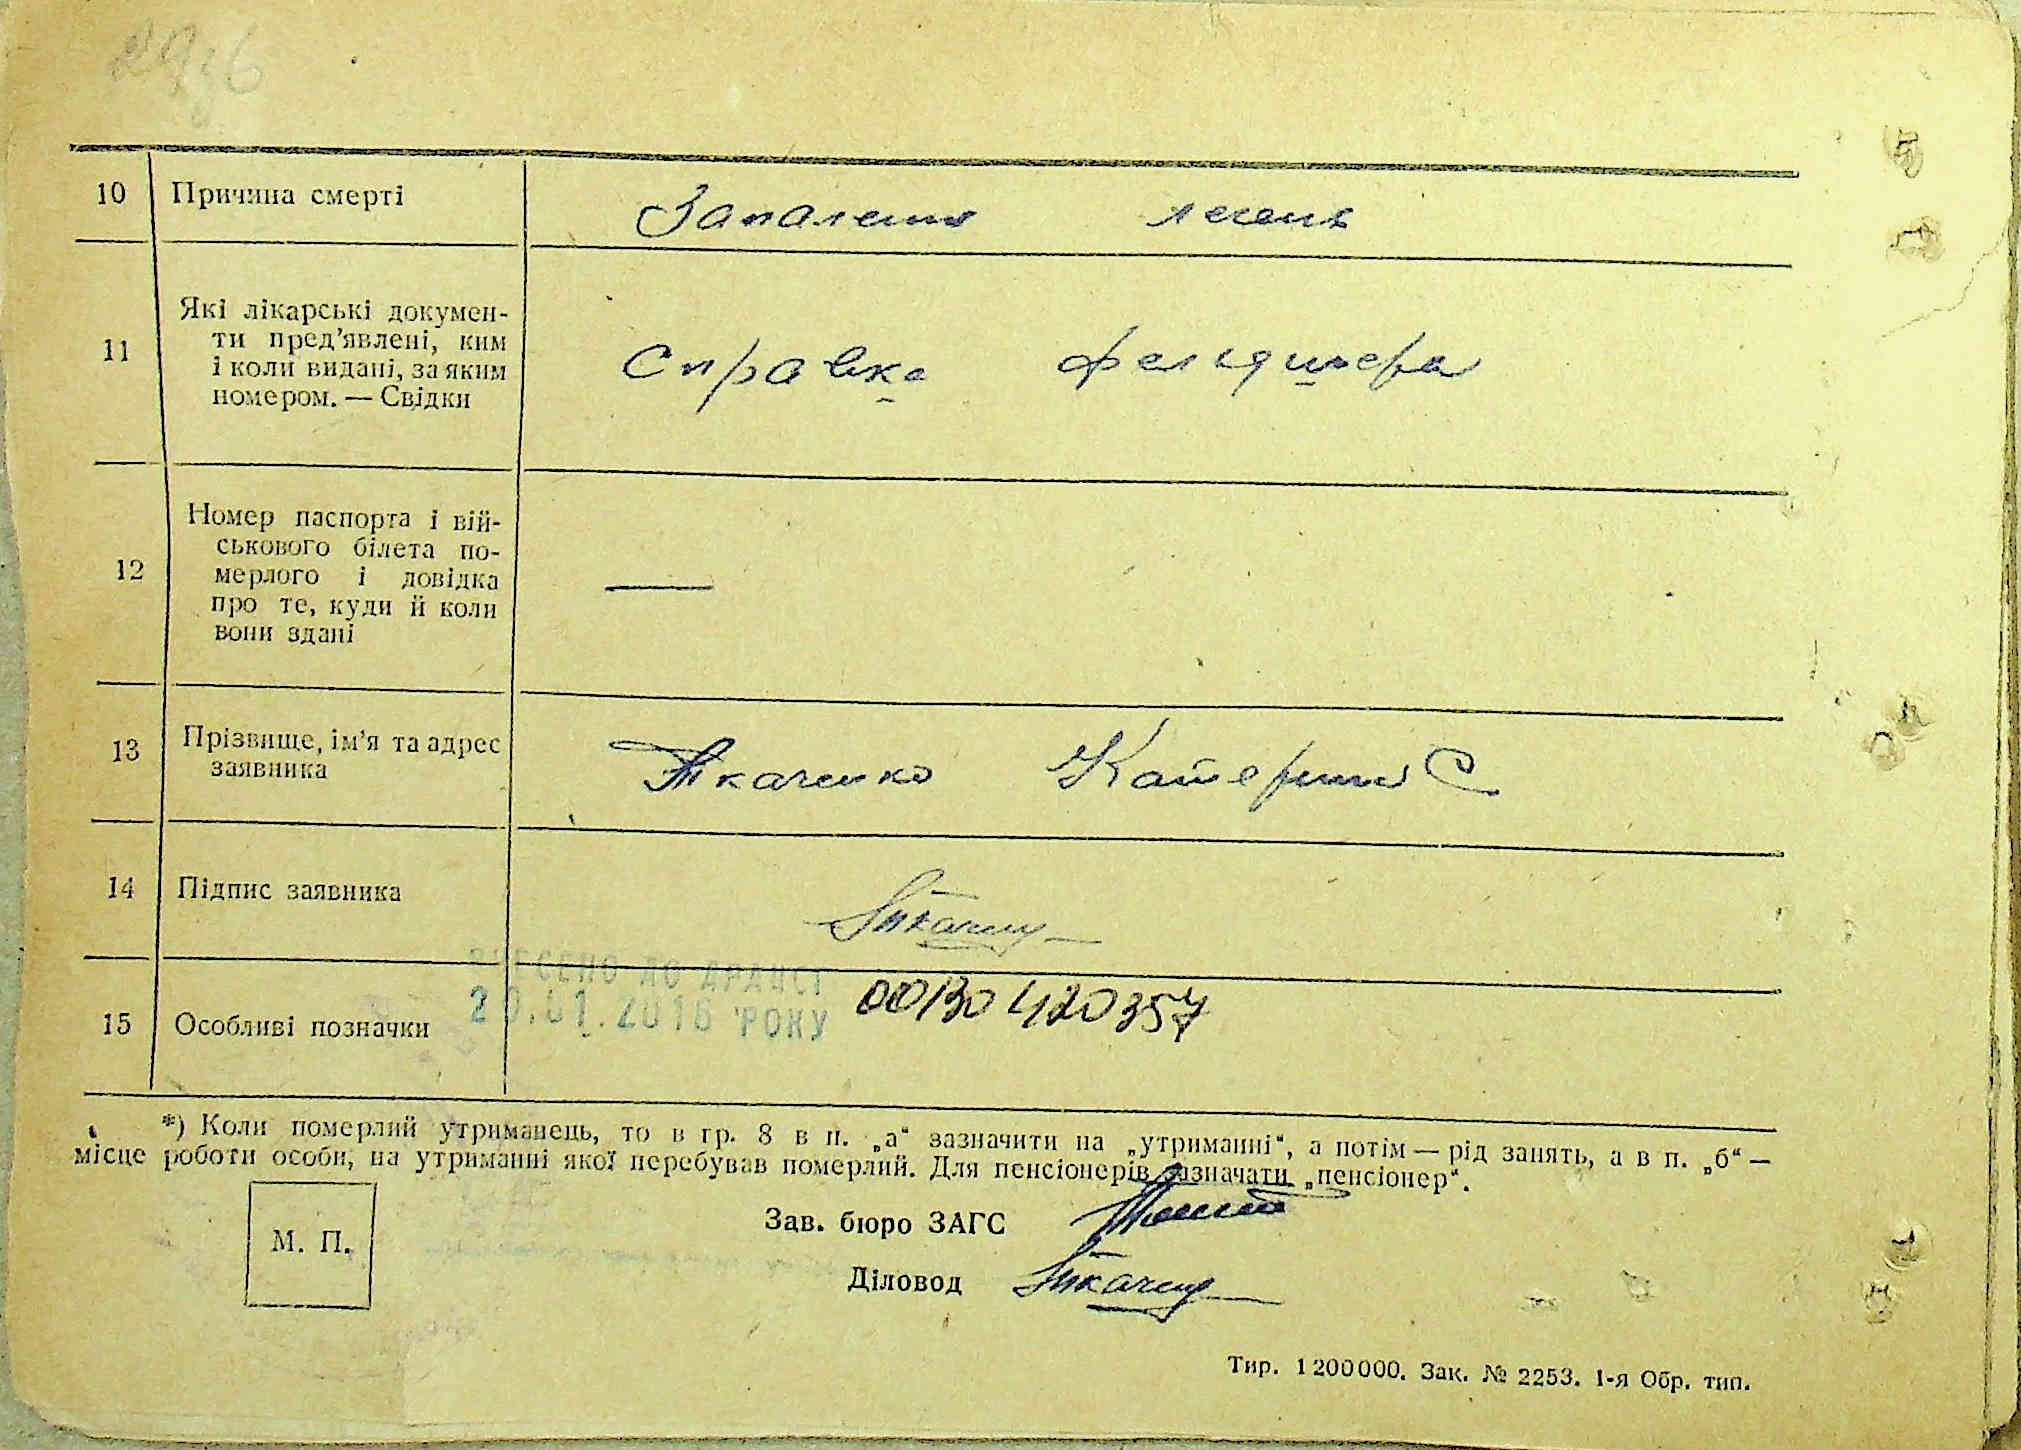 10 Причина смерті Запалення легень
11 Які лікарські докумен-
ти пред’явлені, ким
і коли видані, за яким
номером. — Свідки
Справка фельдшера
12 Номер паспорта і вій-
ськового білета по-
мерлого і довідка
про те, куди й коли
вони здані
—
13 Прізвище, ім’я та адрес
заявника
Ткаченко Катерина С
14 Підпис заявника
ВНЕСЕНО ДО ДРАЦСГ
20.01.2016 РОКУ
00130420357
15 Особливі позначки
*) Коли померлий утриманець, то в гр. 8 в п. „а“ зазначити на „утриманні“, а потім — рід занять, а в п. „б“ —
місце роботи особи, на утриманні якої перебував померлий. Для пенсіонерів зазначати „пенсіонер“.
М. П.
Зав. бюро ЗАГС
Діловод
Тир. 1200000. Зак. № 2253. 1-я Обр. тип.